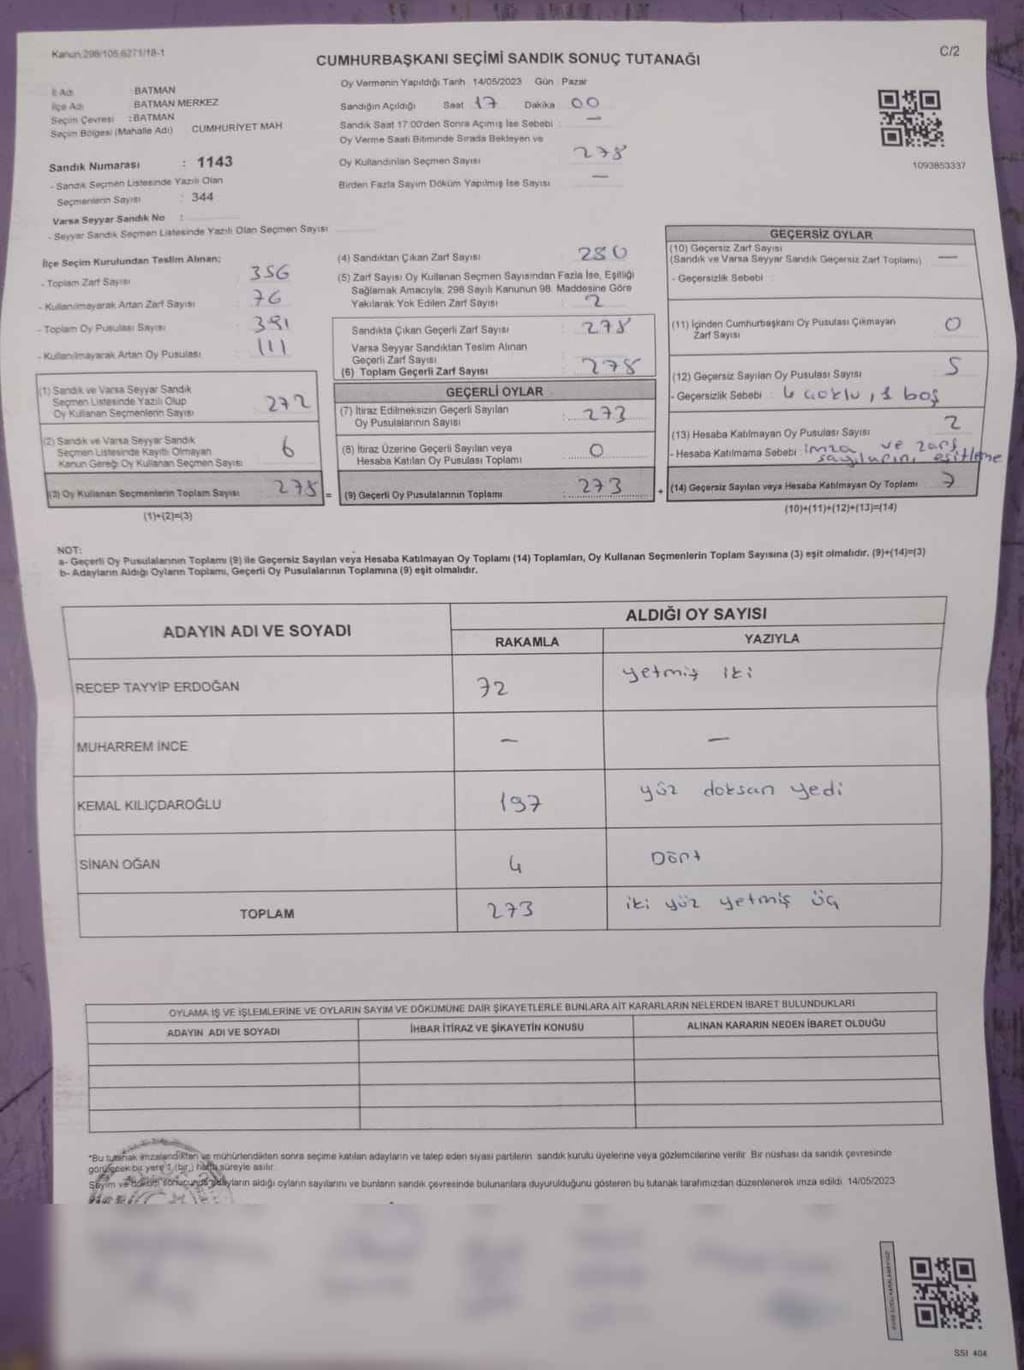 Kanun 298/105.6271/18-1
C/2
CUMHURBAŞKANI SEÇİMİ SANDIK SONUÇ TUTANAĞI
İl Adı : BATMAN
İlçe Adı : BATMAN MERKEZ
Seçim Çevresi : BATMAN
Seçim Bölgesi (Mahalle Adı) CUMHURİYET MAH
Sandık Numarası : 1143
- Sandık Seçmen Listesinde Yazılı Olan
Seçmenlerin Sayısı : 344
Varsa Seyyar Sandık No :
- Seyyar Sandık Seçmen Listesinde Yazılı Olan Seçmen Sayısı
Oy Vermenin Yapıldığı Tarih 14/05/2023 Gün Pazar
Sandığın Açıldığı Saat 17 Dakika 00
Sandık Saat 17:00'den Sonra Açımış İse Sebebi : —
Oy Verme Saati Bitiminde Sırada Bekleyen ve
Oy Kullandırılan Seçmen Sayısı 278
Birden Fazla Sayım Döküm Yapılmış İse Sayısı —
1093853337
İlçe Seçim Kurulundan Teslim Alınan;
- Toplam Zarf Sayısı : 356
- Kullanılmayarak Artan Zarf Sayısı : 76
- Toplam Oy Pusulası Sayısı : 391
- Kullanılmayarak Artan Oy Pusulası : 111
(1) Sandık ve Varsa Seyyar Sandık
Seçmen Listesinde Yazılı Olup
Oy Kullanan Seçmenlerin Sayısı 272
(2) Sandık ve Varsa Seyyar Sandık
Seçmen Listesinde Kayıtlı Olmayan
Kanun Gereği Oy Kullanan Seçmen Sayısı 6
(3) Oy Kullanan Seçmenlerin Toplam Sayısı 278 =
(1)+(2)=(3)
(4) Sandıktan Çıkan Zarf Sayısı : 280
(5) Zarf Sayısı Oy Kullanan Seçmen Sayısından Fazla İse, Eşitliği
Sağlamak Amacıyla, 298 Sayılı Kanunun 98. Maddesine Göre
Yakılarak Yok Edilen Zarf Sayısı : 2
Sandıkta Çıkan Geçerli Zarf Sayısı : 278
Varsa Seyyar Sandıktan Teslim Alınan
Geçerli Zarf Sayısı
(6) Toplam Geçerli Zarf Sayısı : 278
GEÇERLİ OYLAR
(7) İtiraz Edilmeksizin Geçerli Sayılan
Oy Pusulalarının Sayısı : 273
(8) İtiraz Üzerine Geçerli Sayılan veya
Hesaba Katılan Oy Pusulası Toplamı : 0
(9) Geçerli Oy Pusulalarının Toplamı : 273 +
GEÇERSİZ OYLAR
(10) Geçersiz Zarf Sayısı
(Sandık ve Varsa Seyyar Sandık Geçersiz Zarf Toplamı) —
- Geçersizlik Sebebi :
(11) İçinden Cumhurbaşkanı Oy Pusulası Çıkmayan
Zarf Sayısı 0
(12) Geçersiz Sayılan Oy Pusulası Sayısı 5
- Geçersizlik Sebebi : 4 çoklu, 1 boş
(13) Hesaba Katılmayan Oy Pusulası Sayısı 2
- Hesaba Katılmama Sebebi : imza ve zarf
sayılarını eşitleme
(14) Geçersiz Sayılan veya Hesaba Katılmayan Oy Toplamı 7
(10)+(11)+(12)+(13)=(14)
NOT:
a- Geçerli Oy Pusulalarının Toplamı (9) ile Geçersiz Sayılan veya Hesaba Katılmayan Oy Toplamı (14) Toplamları, Oy Kullanan Seçmenlerin Toplam Sayısına (3) eşit olmalıdır. (9)+(14)=(3)
b- Adayların Aldığı Oyların Toplamı, Geçerli Oy Pusulalarının Toplamına (9) eşit olmalıdır.
ADAYIN ADI VE SOYADI ALDIĞI OY SAYISI
RAKAMLA YAZIYLA
RECEP TAYYİP ERDOĞAN 72 yetmiş iki
MUHARREM İNCE — —
KEMAL KILIÇDAROĞLU 197 yüz doksan yedi
SİNAN OĞAN 4 Dört
TOPLAM 273 iki yüz yetmiş üç
OYLAMA İŞ VE İŞLEMLERİNE VE OYLARIN SAYIM VE DÖKÜMÜNE DAİR ŞİKAYETLERLE BUNLARA AİT KARARLARIN NELERDEN İBARET BULUNDUKLARI
ADAYIN ADI VE SOYADI İHBAR İTİRAZ VE ŞİKAYETİN KONUSU ALINAN KARARIN NEDEN İBARET OLDUĞU
*Bu tutanak imzalandıktan ve mühürlendikten sonra seçime katılan adayların ve talep eden siyasi partilerin sandık kurulu üyelerine veya gözlemcilerine verilir. Bir nüshası da sandık çevresinde
görülecek bir yere 1 (bir) hafta süreyle asılır.
Sayım ve döküm sonucunda adayların aldığı oyların sayılarını ve bunların sandık çevresinde bulunanlara duyurulduğunu gösteren bu tutanak tarafımızdan düzenlenerek imza edildi. 14/05/2023
SSI 404